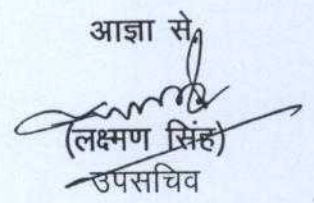 आज्ञा से,
(लक्ष्मण सिंह)
उपसचिव